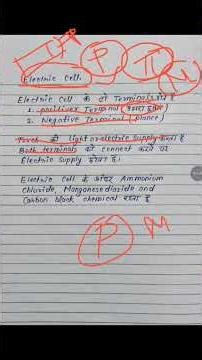 P
π
Electric Cell.
Electric Cell के दो Terminals होते हैं
1. positiver Terminal
2. Negative Terminal (
Torch की light or electric Supply करता है
Both terminals को connect करने पर
Electric Supply होता है।
Electric Cell के अंदर Ammonium
Chloride, Manganese dioxide and
Carbon black chemical रहता है
P M